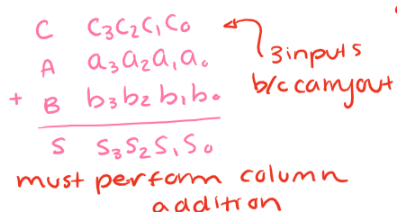 C C₃C₂C₁C₀
A a₃a₂a₁a₀
+ B b₃b₂b₁b₀
S S₃S₂S₁S₀
3 inputs
b/c carryout
must perform column
addition